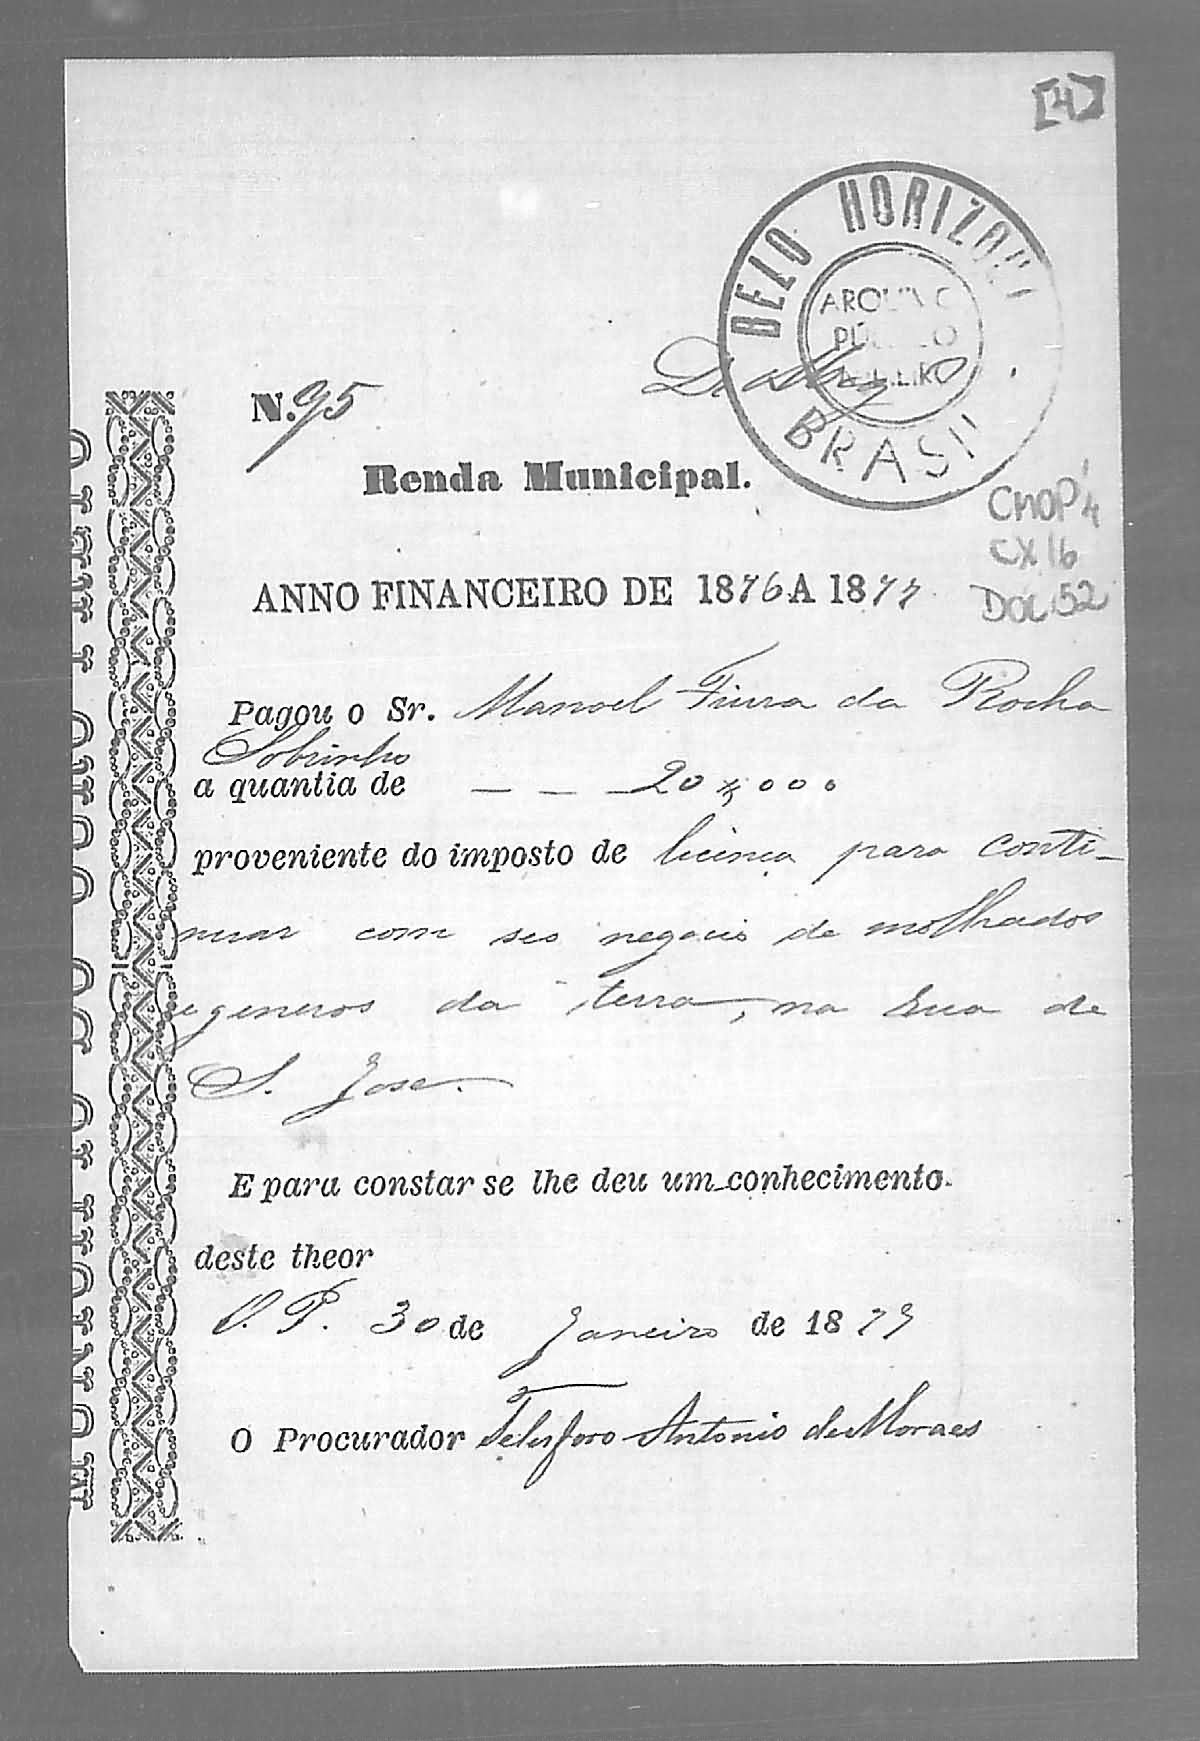 [4]
BELO HORIZON
ARQUIVO
PÚBLICO
MINEIRO
BRASIL
N. 95
Renda Municipal.
CMOP 4
CX 16
DOC 52
ANNO FINANCEIRO DE 1876 A 1877
Pagou o Sr. Manoel da Rocha
Sobrinho
a quantia de — — — 20$000
proveniente do imposto de licença para conti-
nuar com seo negocio de molhados
e generos da terra, na Rua de
S. Jose.
E para constar se lhe deu um conhecimento
deste theor
O. P. 30 de Janeiro de 1877
O Procurador Telesforo Antonio de Moraes